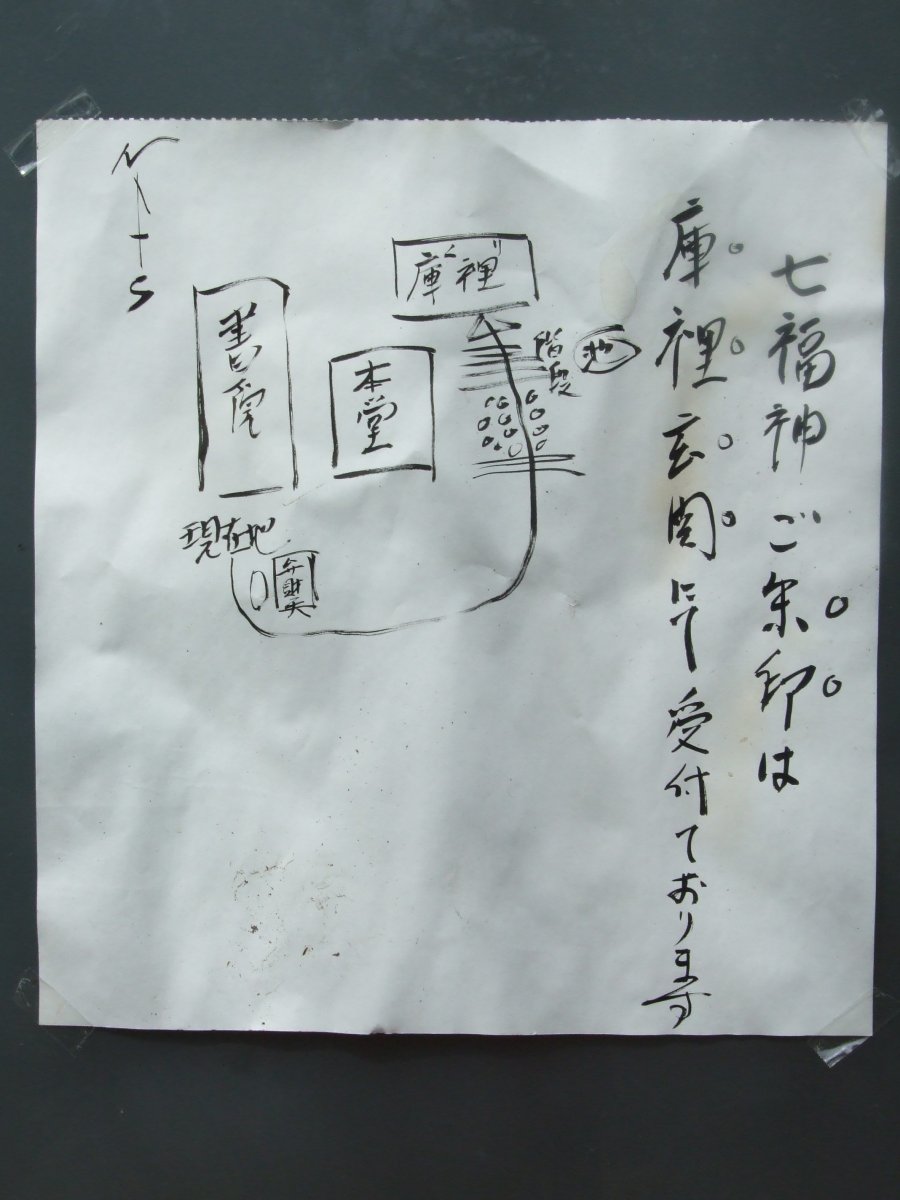 七福神ご朱印は
庫裡玄関にて受付ております
N
S
庫裡
く り
階段
池
本堂
書院
現在地
弁財天